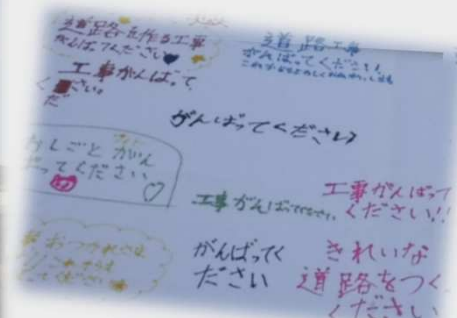 道路を作る工事
がんばってください
道路工事
がんばってください
これからもよろしくおねがいします
工事がんばって
ください。
がんばってください
おしごとがん
ばってください
工事がんばってください。
工事がんばって
ください!!
おつかれさま
がんばってく
ださい
きれいな
道路をつく
ください